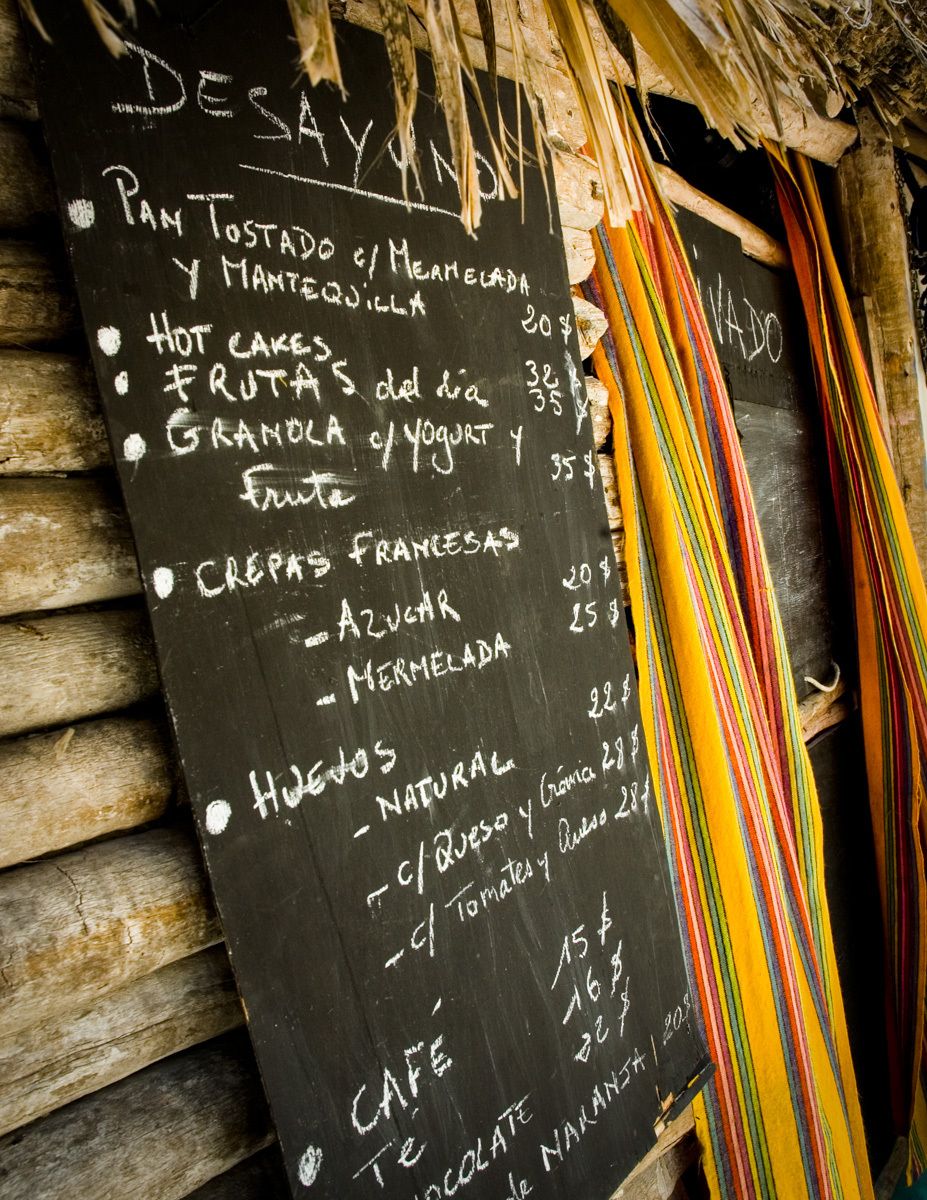 DESAYUNO
• PAN TOSTADO c/ MERMELADA
Y MANTEQUILLA 20 $
• HOT CAKES 32 $
• FRUTAS del dia 35 $
• GRANOLA c/ YOGURT y 35 $
Fruta
• CREPAS FRANCESAS
- AZUCAR 20 $
- MERMELADA 25 $
• HUEVOS
- NATURAL 22 $
- c/ Queso y Crema 28 $
- c/ Tomates y Queso 28 $
• CAFÉ 15 $
Te 16 $
HOCOLATE 22 $
de NARANJA 20$
IVADO